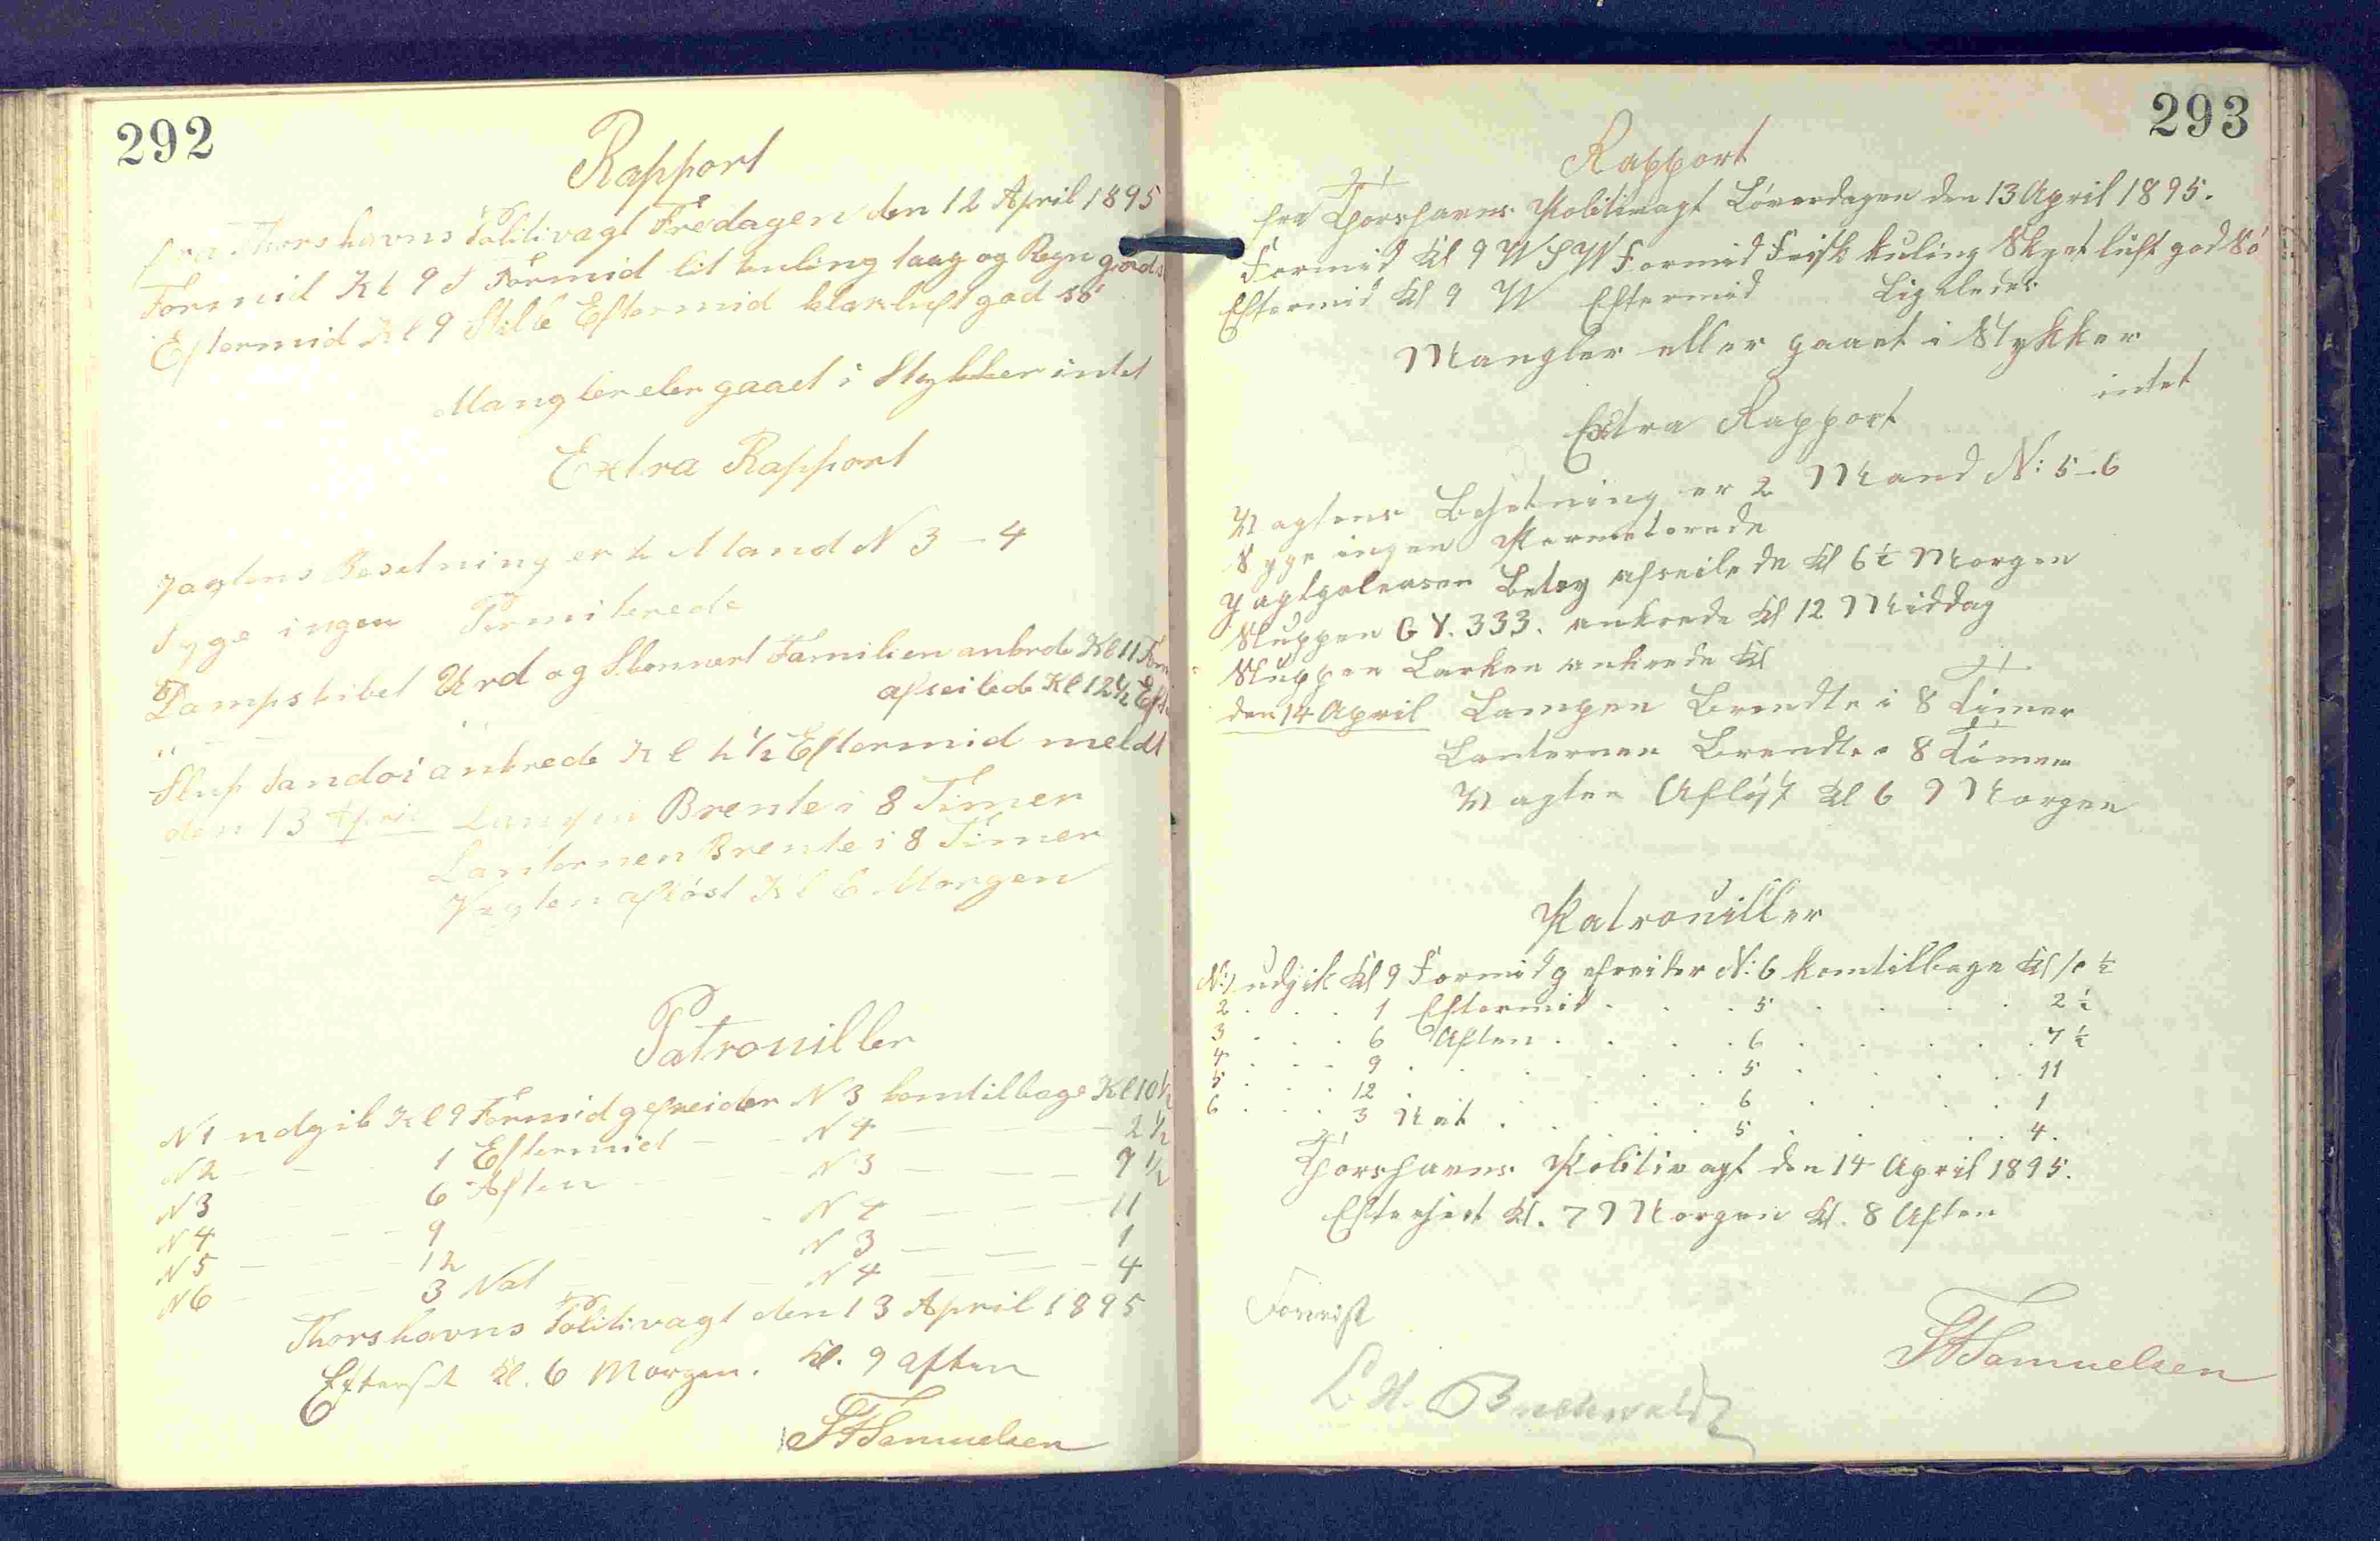 292
Rapport
fra Thorshavns Politivagt Fredagen den 12 April 1895
Formid Kl 9 S Formid lit kuling taag og Regn god sö
Eftermid Kl 9 Stille Eftermid klarluft god sö
Mangler eler gaaet i Stykker intet
Extra Rapport
Vagtens Besetning er 2 Mand N 3 - 4
Syge ingen Permiterede
Dampskibet Urd og Skonnert Familien ankrede Kl 11 Form
afseilede Kl 12½ Eft
Slup Sandoi ankrede Kl 2½ Eftermid meldt
den 13 April Lampen Brente i 8 Timer
Lanternen Brente i 8 Timer
Vagten aflöst Kl 6 Morgen
Patrouiller
N 1 udgik Kl 9 Formid gefreider N 3 komtilbage Kl 10½
N 2 — — 1 Eftermid — — N 4 — — — 2½
N 3 — — 6 Aften — — N 3 — — — 7½
N 4 — — 9 — — N 4 — — — 11
N 5 — — 12 — — N 3 — — — 1
N 6 — — 3 Nat — — N 4 — — — 4
Thorshavns Politivagt den 13 April 1895
Efterset Kl. 6 Morgen. Kl. 9 Aften
Samuelsen
293
Rapport
fra Thorshavns Politivagt Löverdagen den 13 April 1895.
Formid Kl 9 WSW Formid Frisk kuling Skyet luft god Sö
Eftermid Kl 9 W Eftermid Ligeledes
Mangler eller gaaet i Stykker
intet
Extra Rapport
Vagtens Besetning er 2 Mand N: 5-6
Syge ingen Permeterede
Jagtgaleasen Betsy afseilede Kl 6½ Morgen
Sluppen G Y. 333. ankrede Kl 12 Middag
Sluppen Larken ankrede Kl
den 14 April Lampen Brendte i 8 Timer
Lanternen Brendte 8 Timer
Vagten Aflöst Kl 6 Morgen
Patrouiller
N: 1 udgik Kl 9 Formid gefreider N: 6 komtilbage Kl 10 ½
2 . . . 1 Eftermid . . . 5 . . . . 2 ½
3 . . . 6 Aften . . . . 6 . . . . 7 ½
4 . . . 9 . . . . . 5 . . . . 11
5 . . . 12 . . . . . 6 . . . . 1
6 . . . 3 Nat . . . . 5 . . . . 4.
Thorshavns Politivagt den 14 April 1895.
Efterset Kl. 7 Morgen Kl. 8 Aften
Forevist
Samuelsen
Buchwaldt